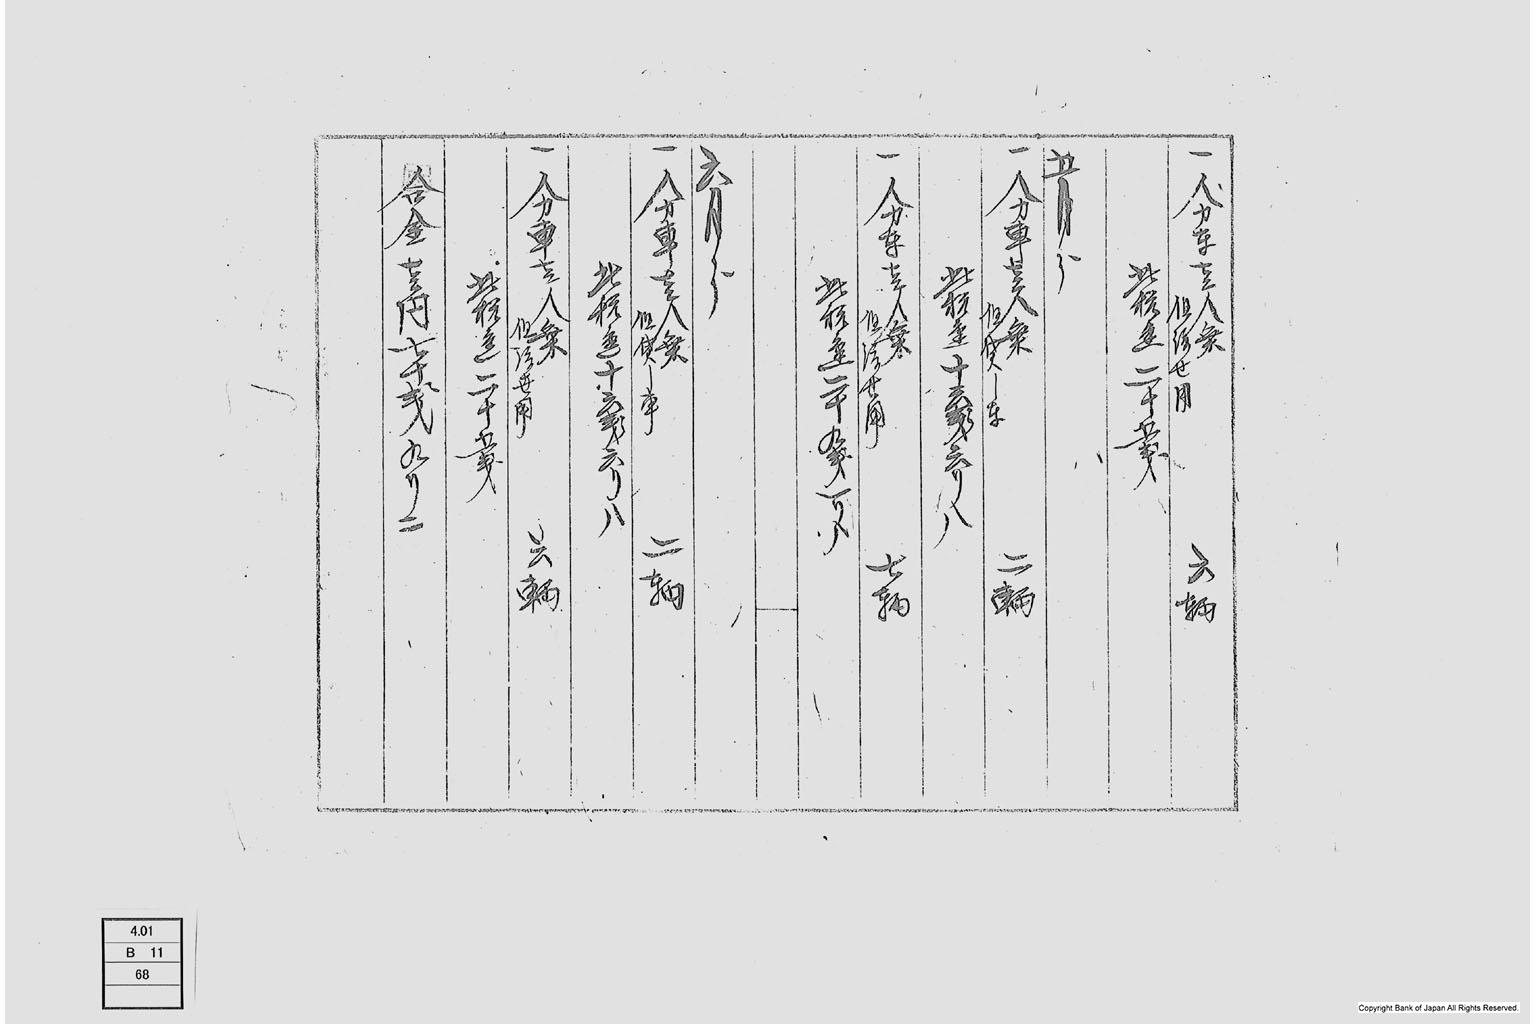 一 人力車壱人乗 但渡世用 六輌
此税金二十五銭
五月分
一 人力車壱人乗 但貸シ車 二輌
此税金十六銭六リ八
一 人力車壱人乗 但渡世用 七輌
此税金二十九銭一リ八
六月分
一 人力車壱人乗 但貸シ車 二輌
此税金十六銭六リ八
一 人力車壱人乗 但渡世用 六輌
此税金二十五銭
合金壱円七十銭九リ二
4.01
B 11
68
Copyright Bank of Japan All Rights Reserved.